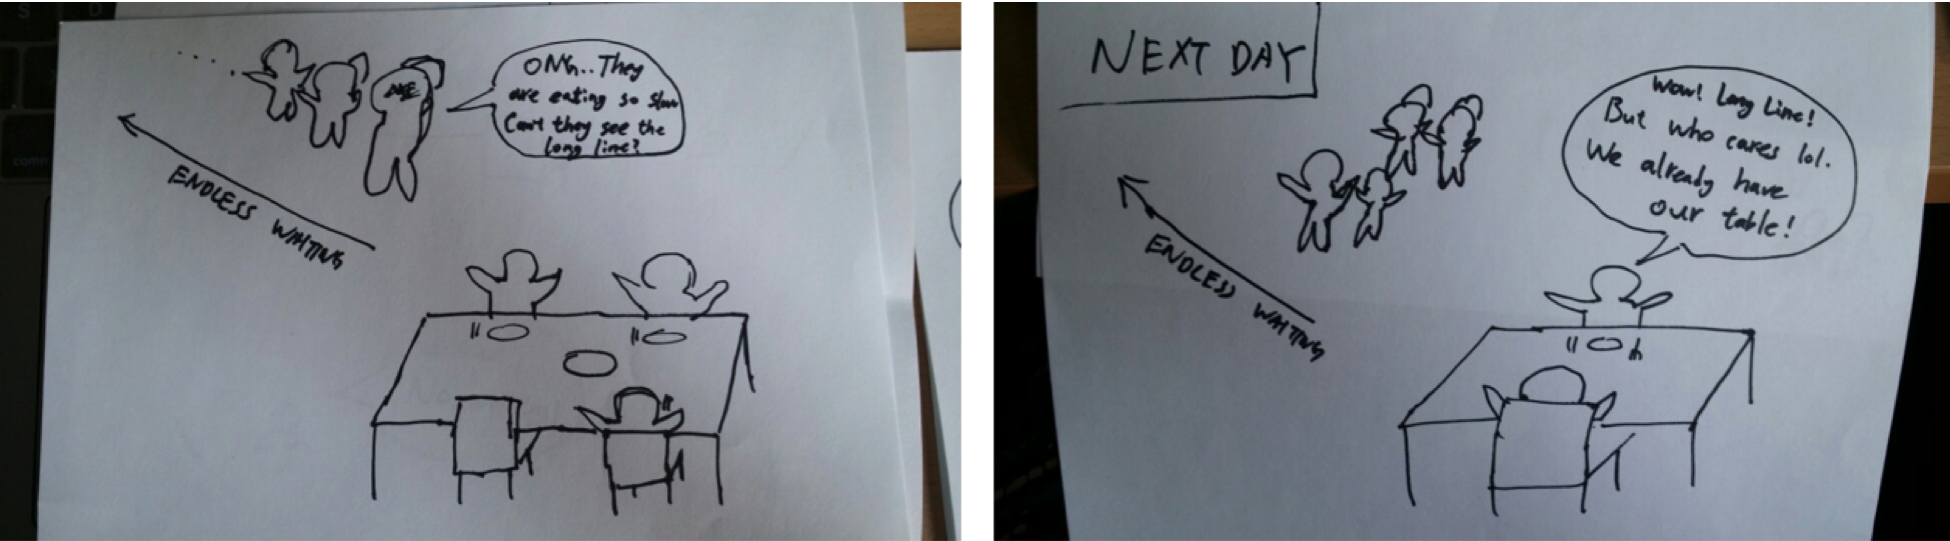 OMG.. They
are eating so slow
Can't they see the
long line?
ENDLESS WAITING
NEXT DAY
Wow! Long Line!
But who cares lol.
We already have
our table!
ENDLESS WAITING